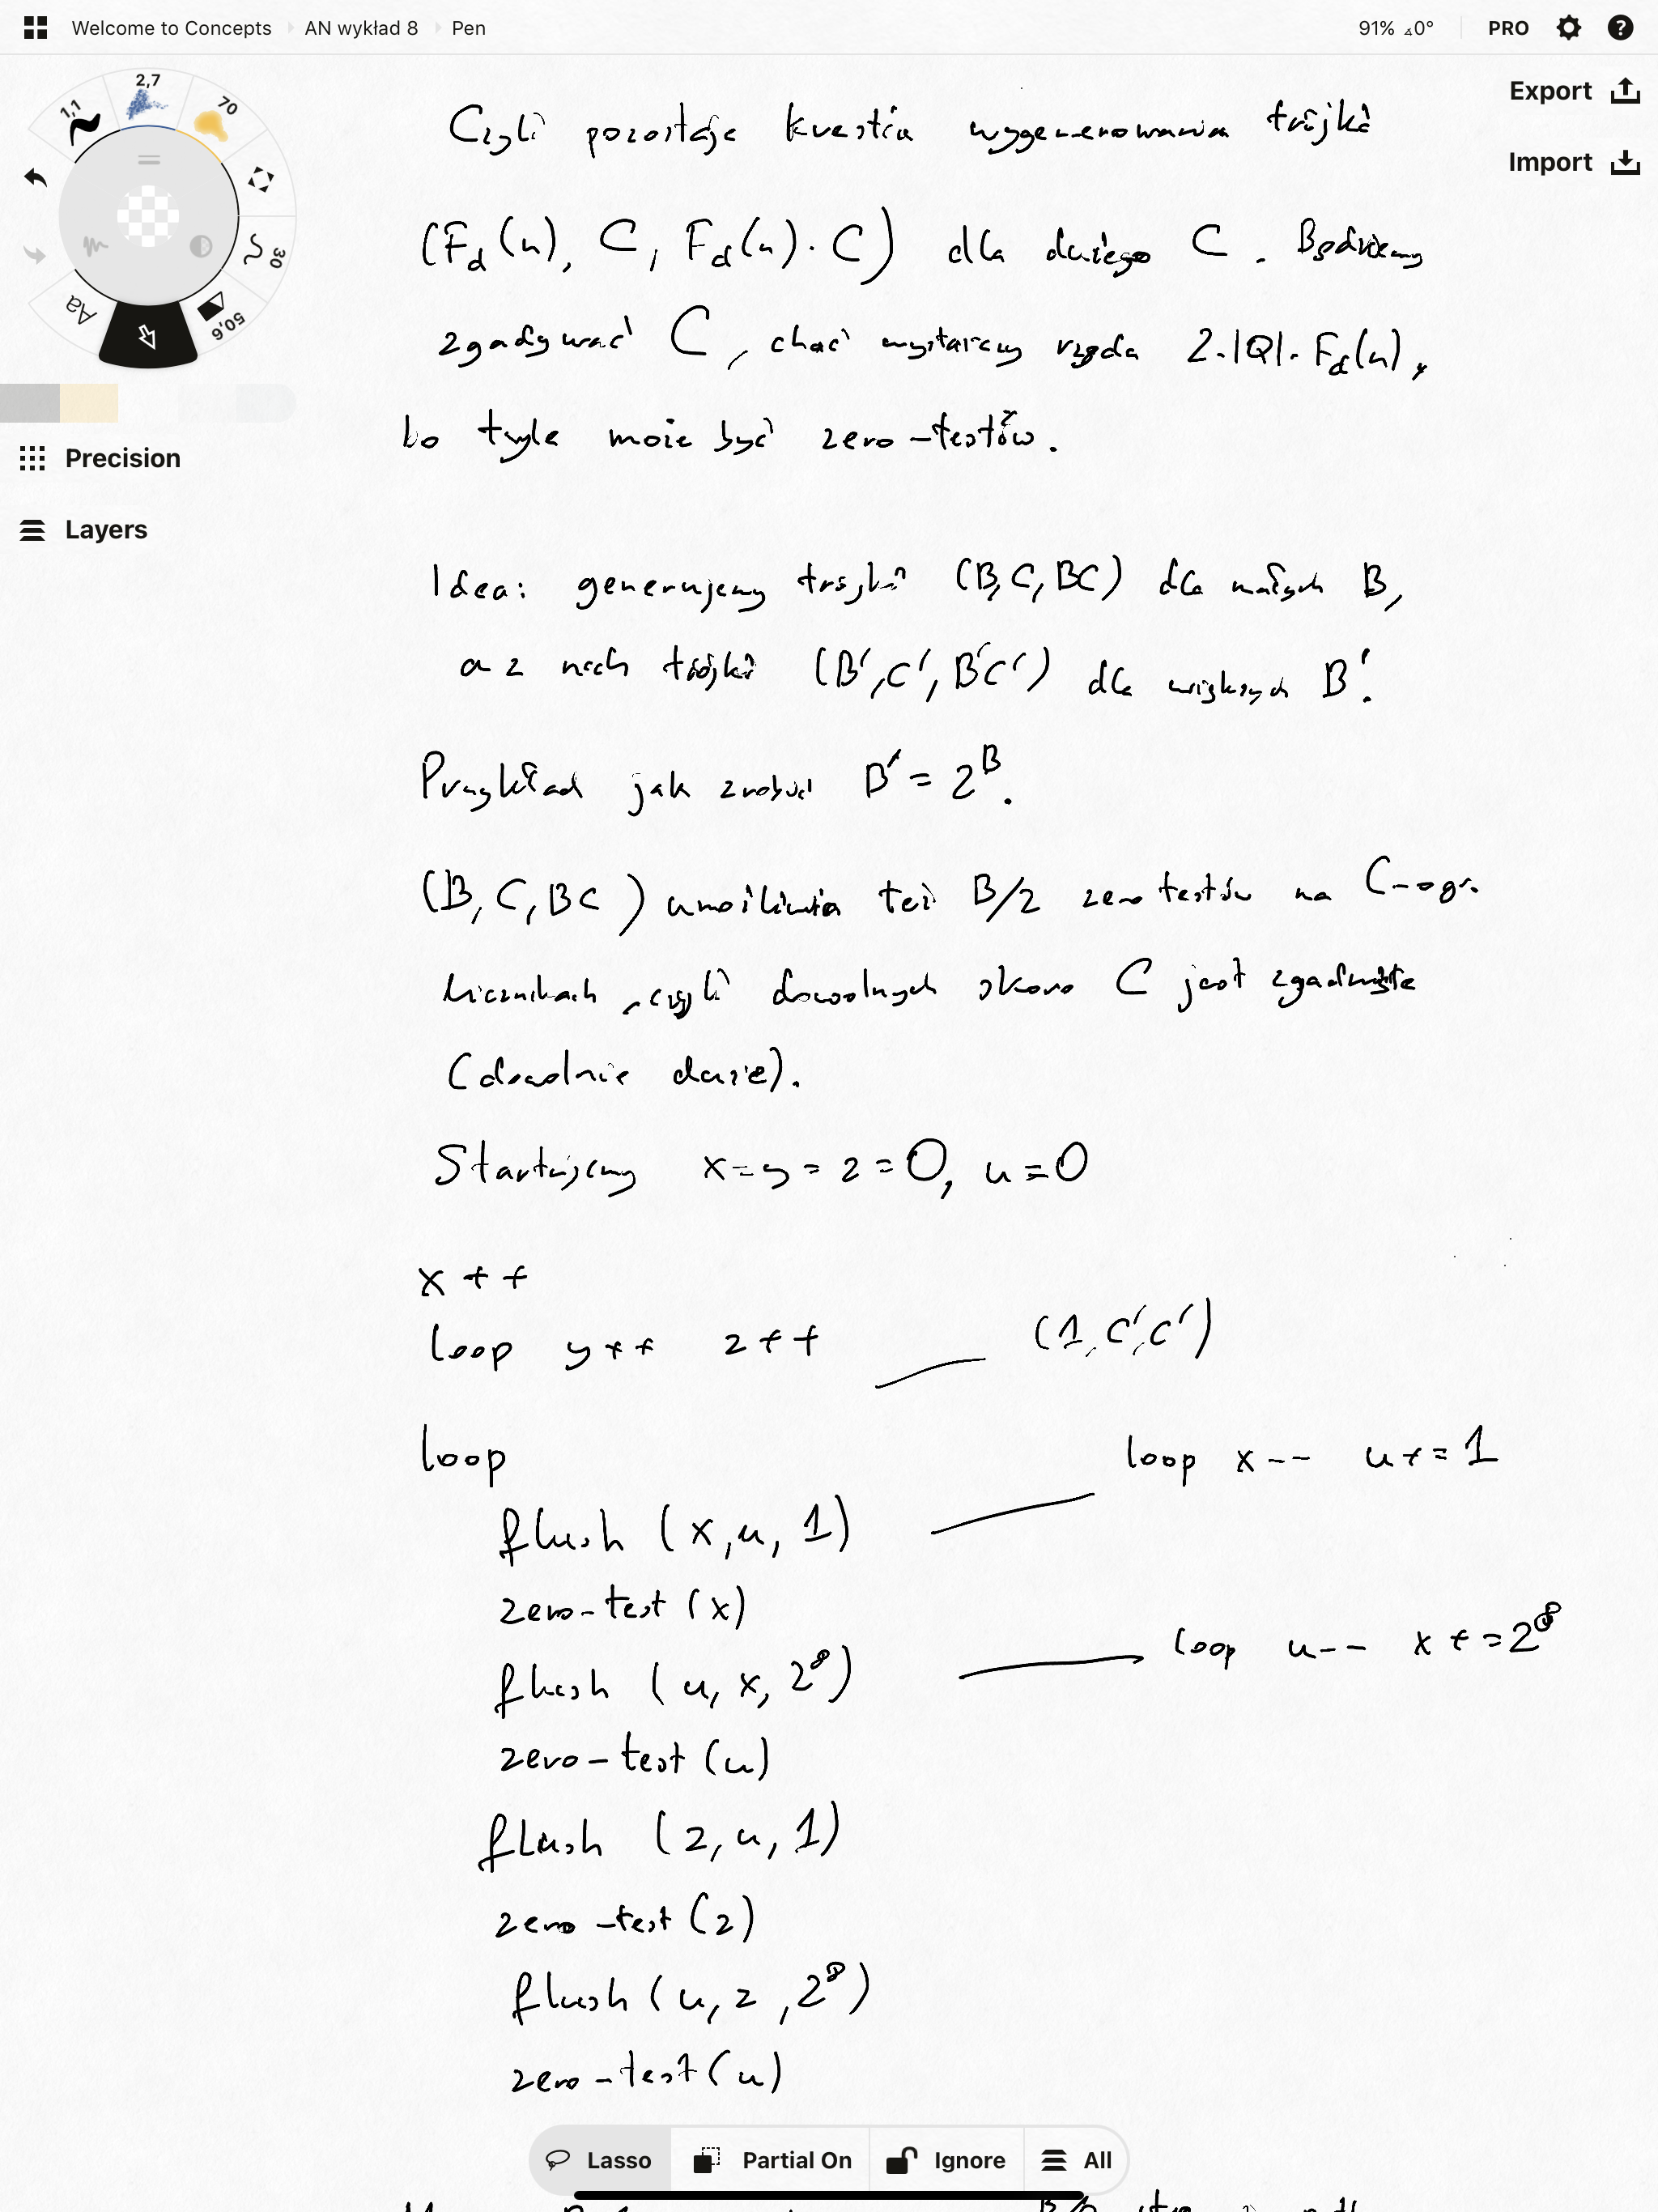 Welcome to Concepts AN wykład 8 Pen
91% ⊿0° PRO
Export
Import
1,1 2,7 70 30 50,6 Aa
Precision
Layers
Czyli pozostaje kwestia wygenerowania trójki
(F_d(n), C, F_d(n)·C) dla dużego C. Będziemy
zgadywać C, choć wystarczy rzędu 2·|Q|·F_d(n),
bo tyle może być zero-testów.
Idea: generujemy trójki (B, C, BC) dla małych B,
a z nich trójki (B', C', B'C') dla większych B'.
Przykład jak zrobić B' = 2^B.
(B, C, BC) umożliwia też B/2 zero testów na C-ogr.
licznikach, czyli dowolnych skoro C jest zgadnięte
(dowolnie duże).
Startujemy x = y = z = 0, u = 0
x++
loop y++ z++ (1, C', C')
loop loop x-- u+=1
flush (x, u, 1)
zero-test (x)
flush (u, x, 2^8) loop u-- x+=2^8
zero-test (u)
flush (z, u, 1)
zero-test (z)
flush (u, z, 2^8)
zero-test (u)
Lasso Partial On Ignore All